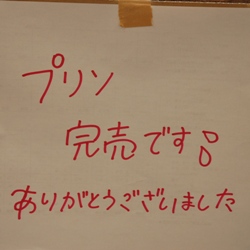 プリン
完売です!
ありがとうございました